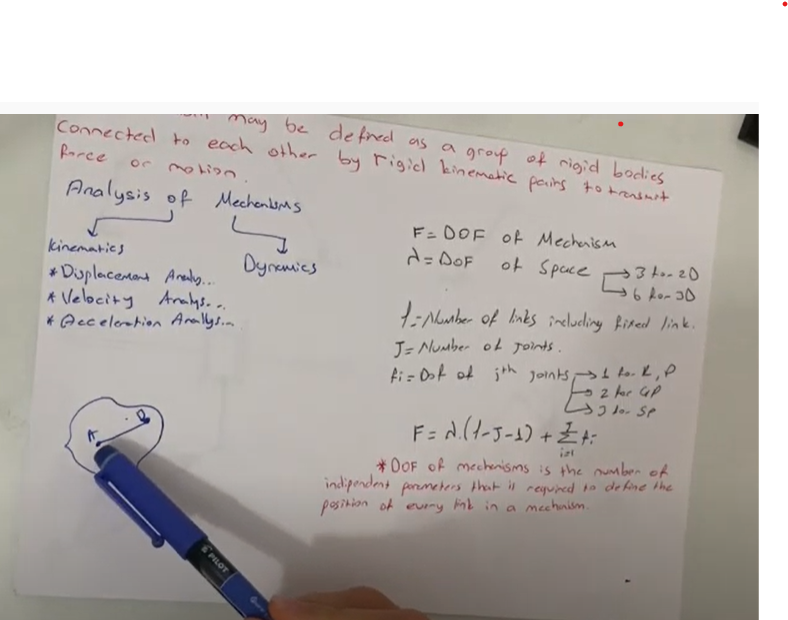 may be defined as a group of rigid bodies
Connected to each other by rigid kinematic pairs to transmit
force or motion.
Analysis of Mechanisms
Kinematics
Dynamics
* Displacement Analy...
* Velocity Analys...
* Acceleration Analys...
F = DOF of Mechanism
λ = DOF of Space → 3 for 2D
→ 6 for 3D
l = Number of links including fixed link.
J = Number of joints.
fi = Dof of jth joints → 1 for R, P
→ 2 for
→ 3 for SP
F = λ.(l-J-1) + Σ fi
i=1
J
* DOF of mechanisms is the number of
indipendent parameters that is required to define the
position of every link in a mechanism.
A
B
PILOT